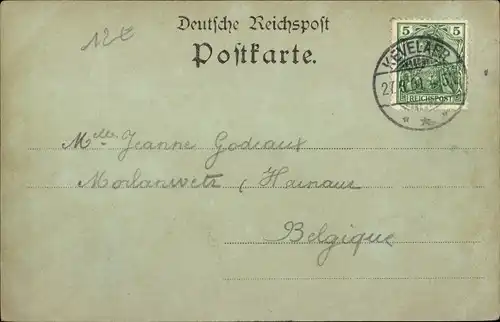 12€
Deutsche Reichspost
Postkarte.
5 5
REICHSPOST
KEVELAER
Mlle Jeanne Godeaux
Morlanwetz, Hainaut
Belgique